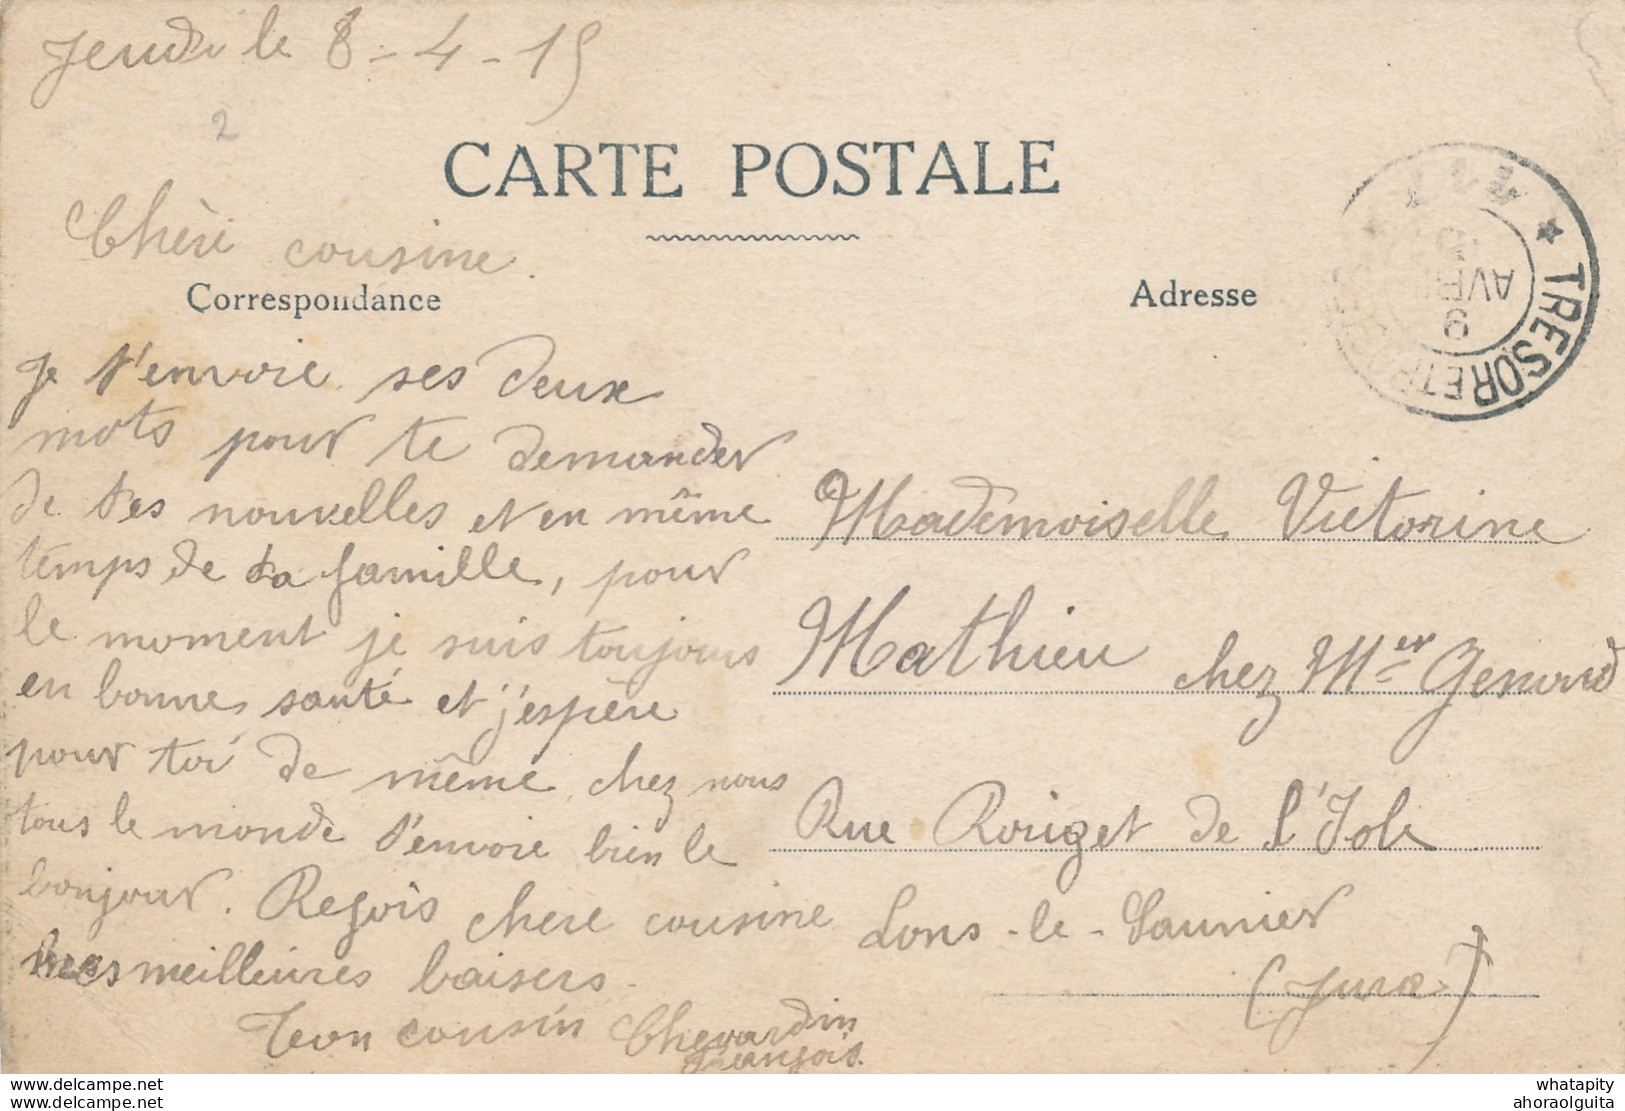 Jeudi le 8-4-15
2
CARTE POSTALE
Chère cousine.
Correspondance
Je t'envoie ses deux
mots pour te demander
de tes nouvelles et en même
temps de ta famille, pour
le moment je suis toujours
en bonne santé et j'espère
pour toi de même chez nous
tous le monde t'envoie bien le
bonjour. Reçois chere cousine
mes meilleures baisers.
Ton cousin Chevardin
François
Adresse
TRESOR ET POSTES
9
AVRIL
15
Mademoiselle Victorine
Mathieu chez Mer
Rue Rouget de l'Isle
Lons-le-Saunier
(Jura)
www.delcampe.net
www.delcampe.net
whatapity
ahoraolguita